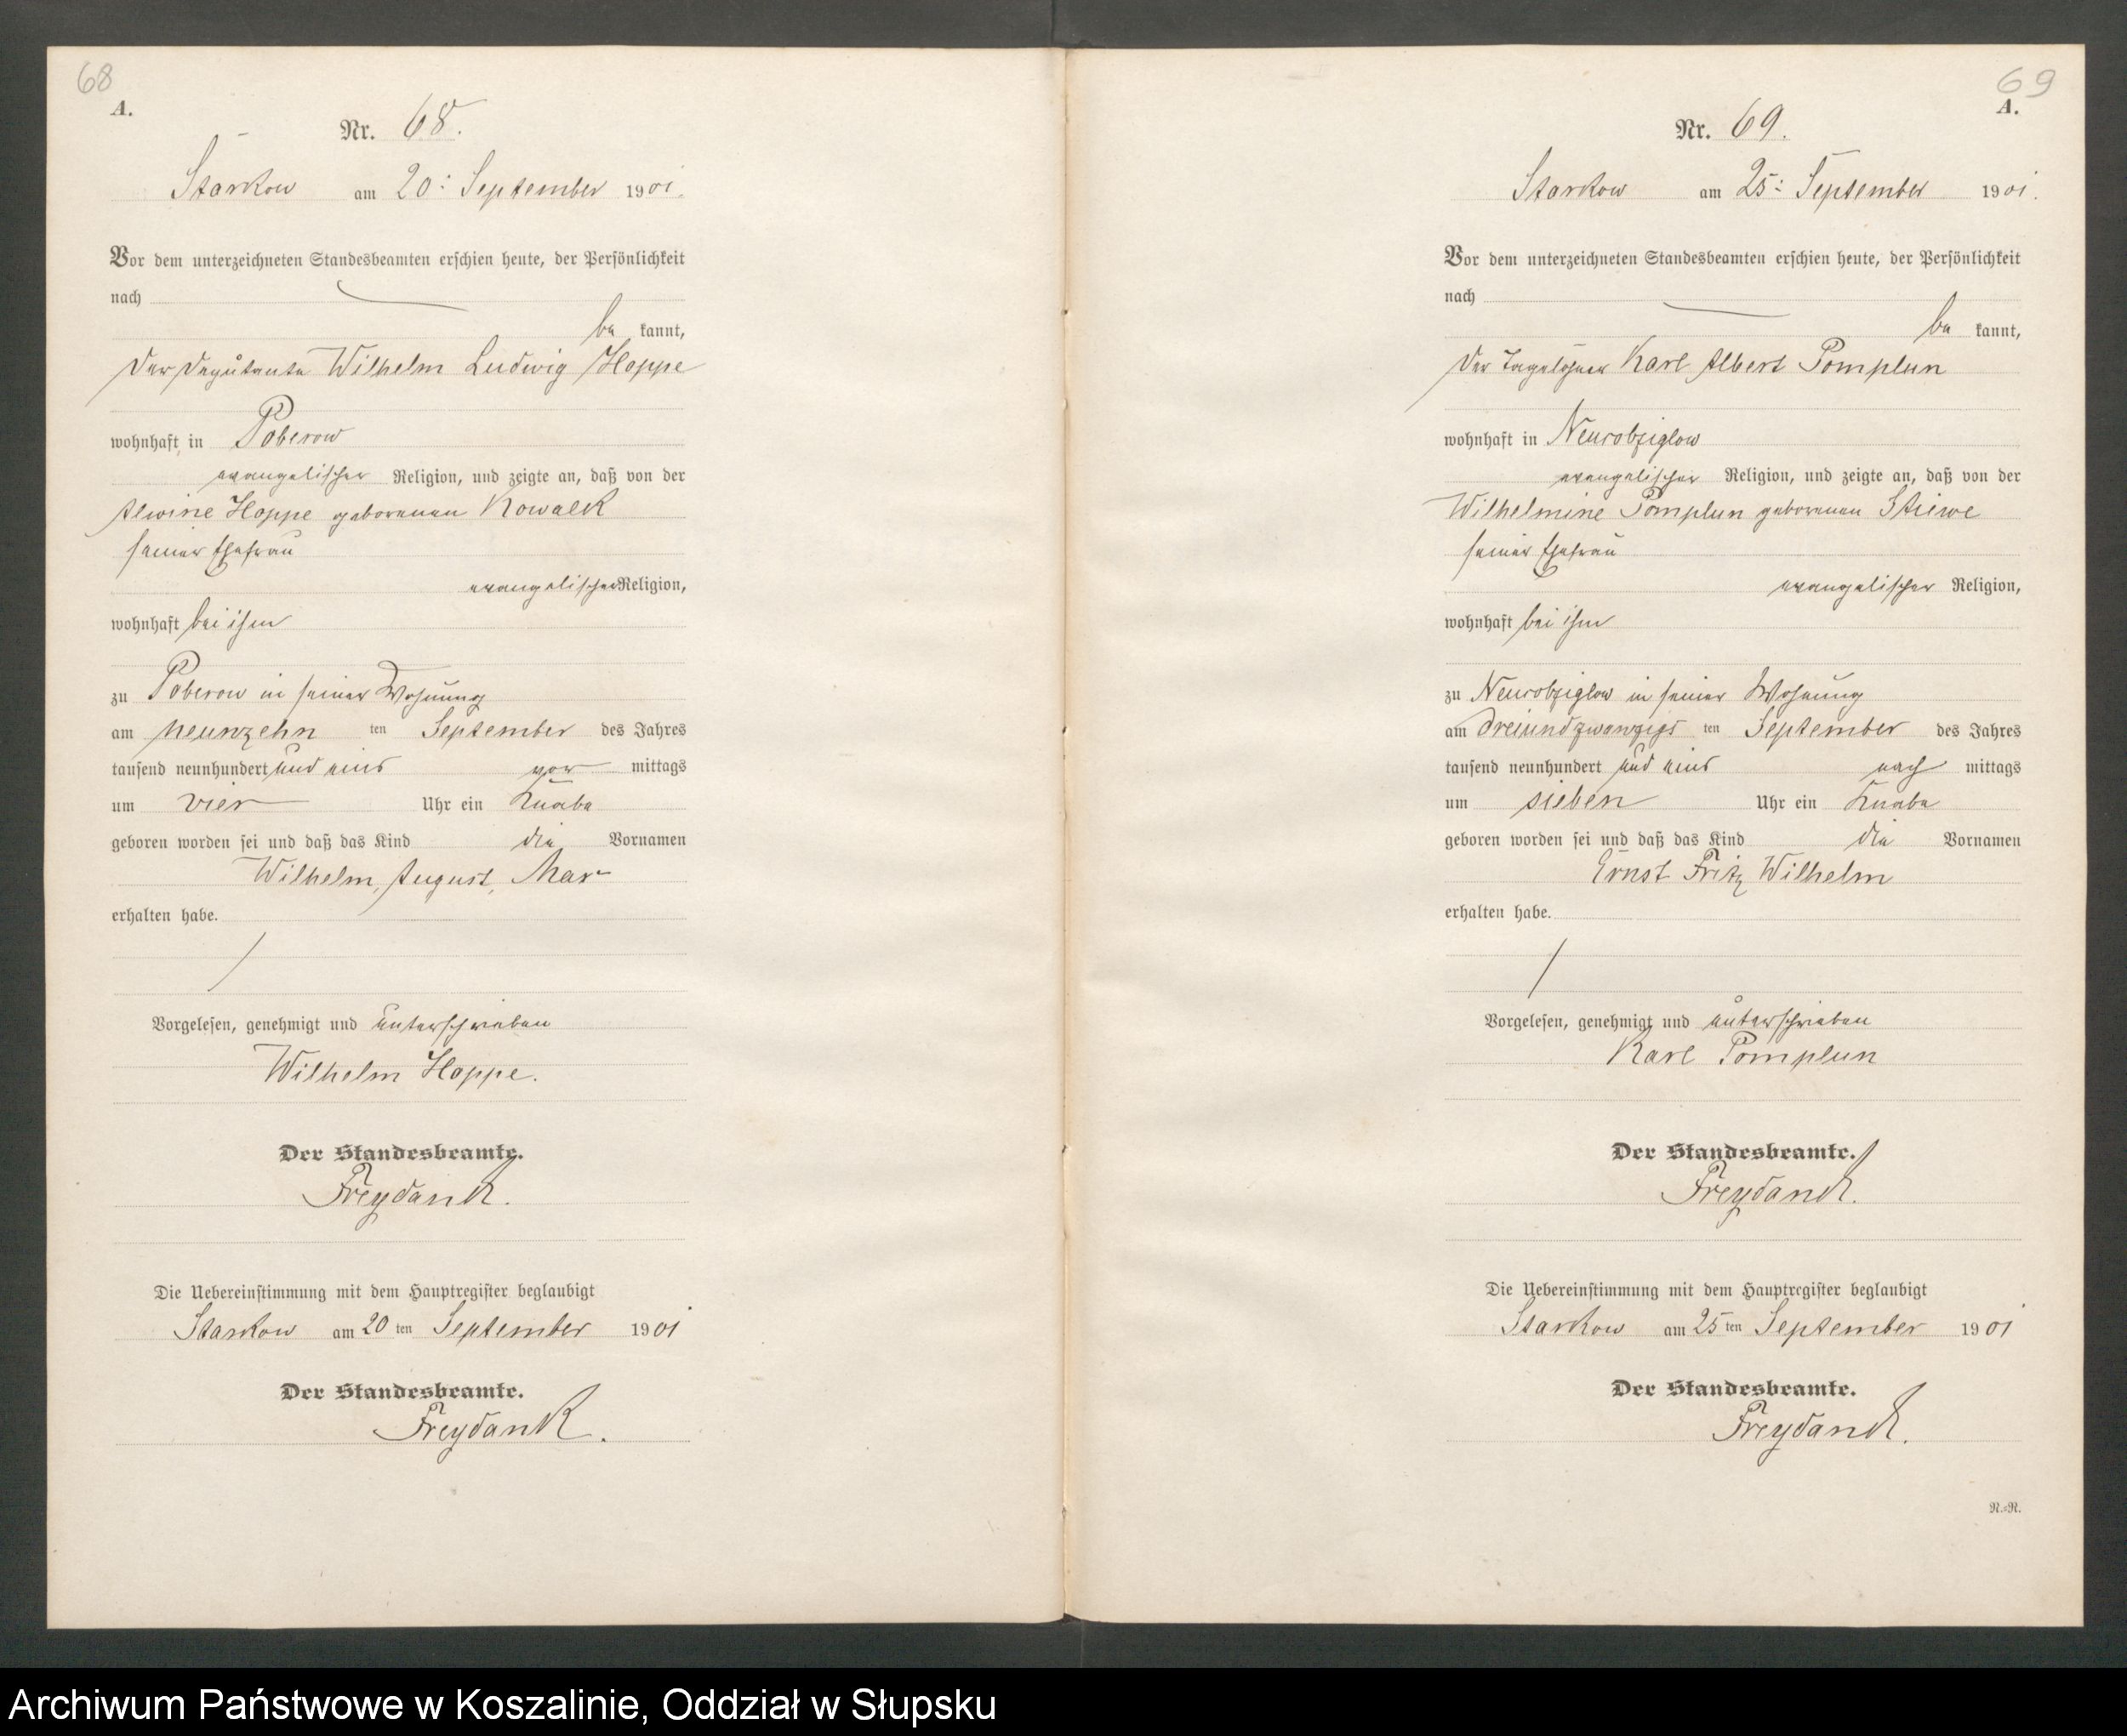 68
A.
Nr. 68.
Starkow am 20. September 1901.
Vor dem unterzeichneten Standesbeamten erschien heute, der Persönlichkeit
nach
be kannt,
der Deputante Wilhelm Ludwig Hoppe
wohnhaft in Poberow
evangelischer Religion, und zeigte an, daß von der
Alwine Hoppe geborenen Kowalk
seiner Ehefrau
evangelischer Religion,
wohnhaft bei ihm
zu Poberow in seiner Wohnung
am neunzehn ten September des Jahres
tausend neunhundert und eins vor mittags
um vier Uhr ein Knabe
geboren worden sei und daß das Kind die Vornamen
Wilhelm, August, Max
erhalten habe.
Vorgelesen, genehmigt und unterschrieben
Wilhelm Hoppe.
Der Standesbeamte.
Freydank.
Die Uebereinstimmung mit dem Hauptregister beglaubigt
Starkow am 20 ten September 1901
Der Standesbeamte.
Freydank.
69
A.
Nr. 69.
Starkow am 25. September 1901.
Vor dem unterzeichneten Standesbeamten erschien heute, der Persönlichkeit
nach
be kannt,
der Tagelöhner Karl Albert Pomplun
wohnhaft in Neurobziglow
evangelischer Religion, und zeigte an, daß von der
Wilhelmine Pomplun geborenen Stüwe
seiner Ehefrau
evangelischer Religion,
wohnhaft bei ihm
zu Neurobziglow in seiner Wohnung
am dreiundzwanzigs ten September des Jahres
tausend neunhundert und eins nach mittags
um sieben Uhr ein Knabe
geboren worden sei und daß das Kind die Vornamen
Ernst Fritz Wilhelm
erhalten habe.
Vorgelesen, genehmigt und unterschrieben
Karl Pomplun
Der Standesbeamte.
Freydank.
Die Uebereinstimmung mit dem Hauptregister beglaubigt
Starkow am 25 ten September 1901
Der Standesbeamte.
Freydank.
R.=R.
Archiwum Państwowe w Koszalinie, Oddział w Słupsku